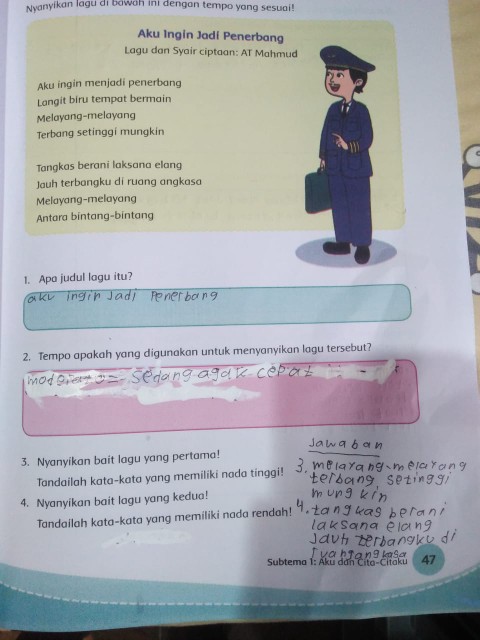 Nyanyikan lagu di bawah ini dengan tempo yang sesuai!
Aku Ingin Jadi Penerbang
Lagu dan Syair ciptaan: AT Mahmud
Aku ingin menjadi penerbang
Langit biru tempat bermain
Melayang-melayang
Terbang setinggi mungkin
Tangkas berani laksana elang
Jauh terbangku di ruang angkasa
Melayang-melayang
Antara bintang-bintang
1. Apa judul lagu itu?
aku ingin Jadi Penerbang
2. Tempo apakah yang digunakan untuk menyanyikan lagu tersebut?
= sedang agak cepat
3. Nyanyikan bait lagu yang pertama!
Tandailah kata-kata yang memiliki nada tinggi!
4. Nyanyikan bait lagu yang kedua!
Tandailah kata-kata yang memiliki nada rendah!
Jawaban
3. melayang-melayang
terbang setinggi
mungkin
4. tangkas berani
laksana elang
Jauh terbangku di
Subtema 1: Aku dan Cita-Citaku 47